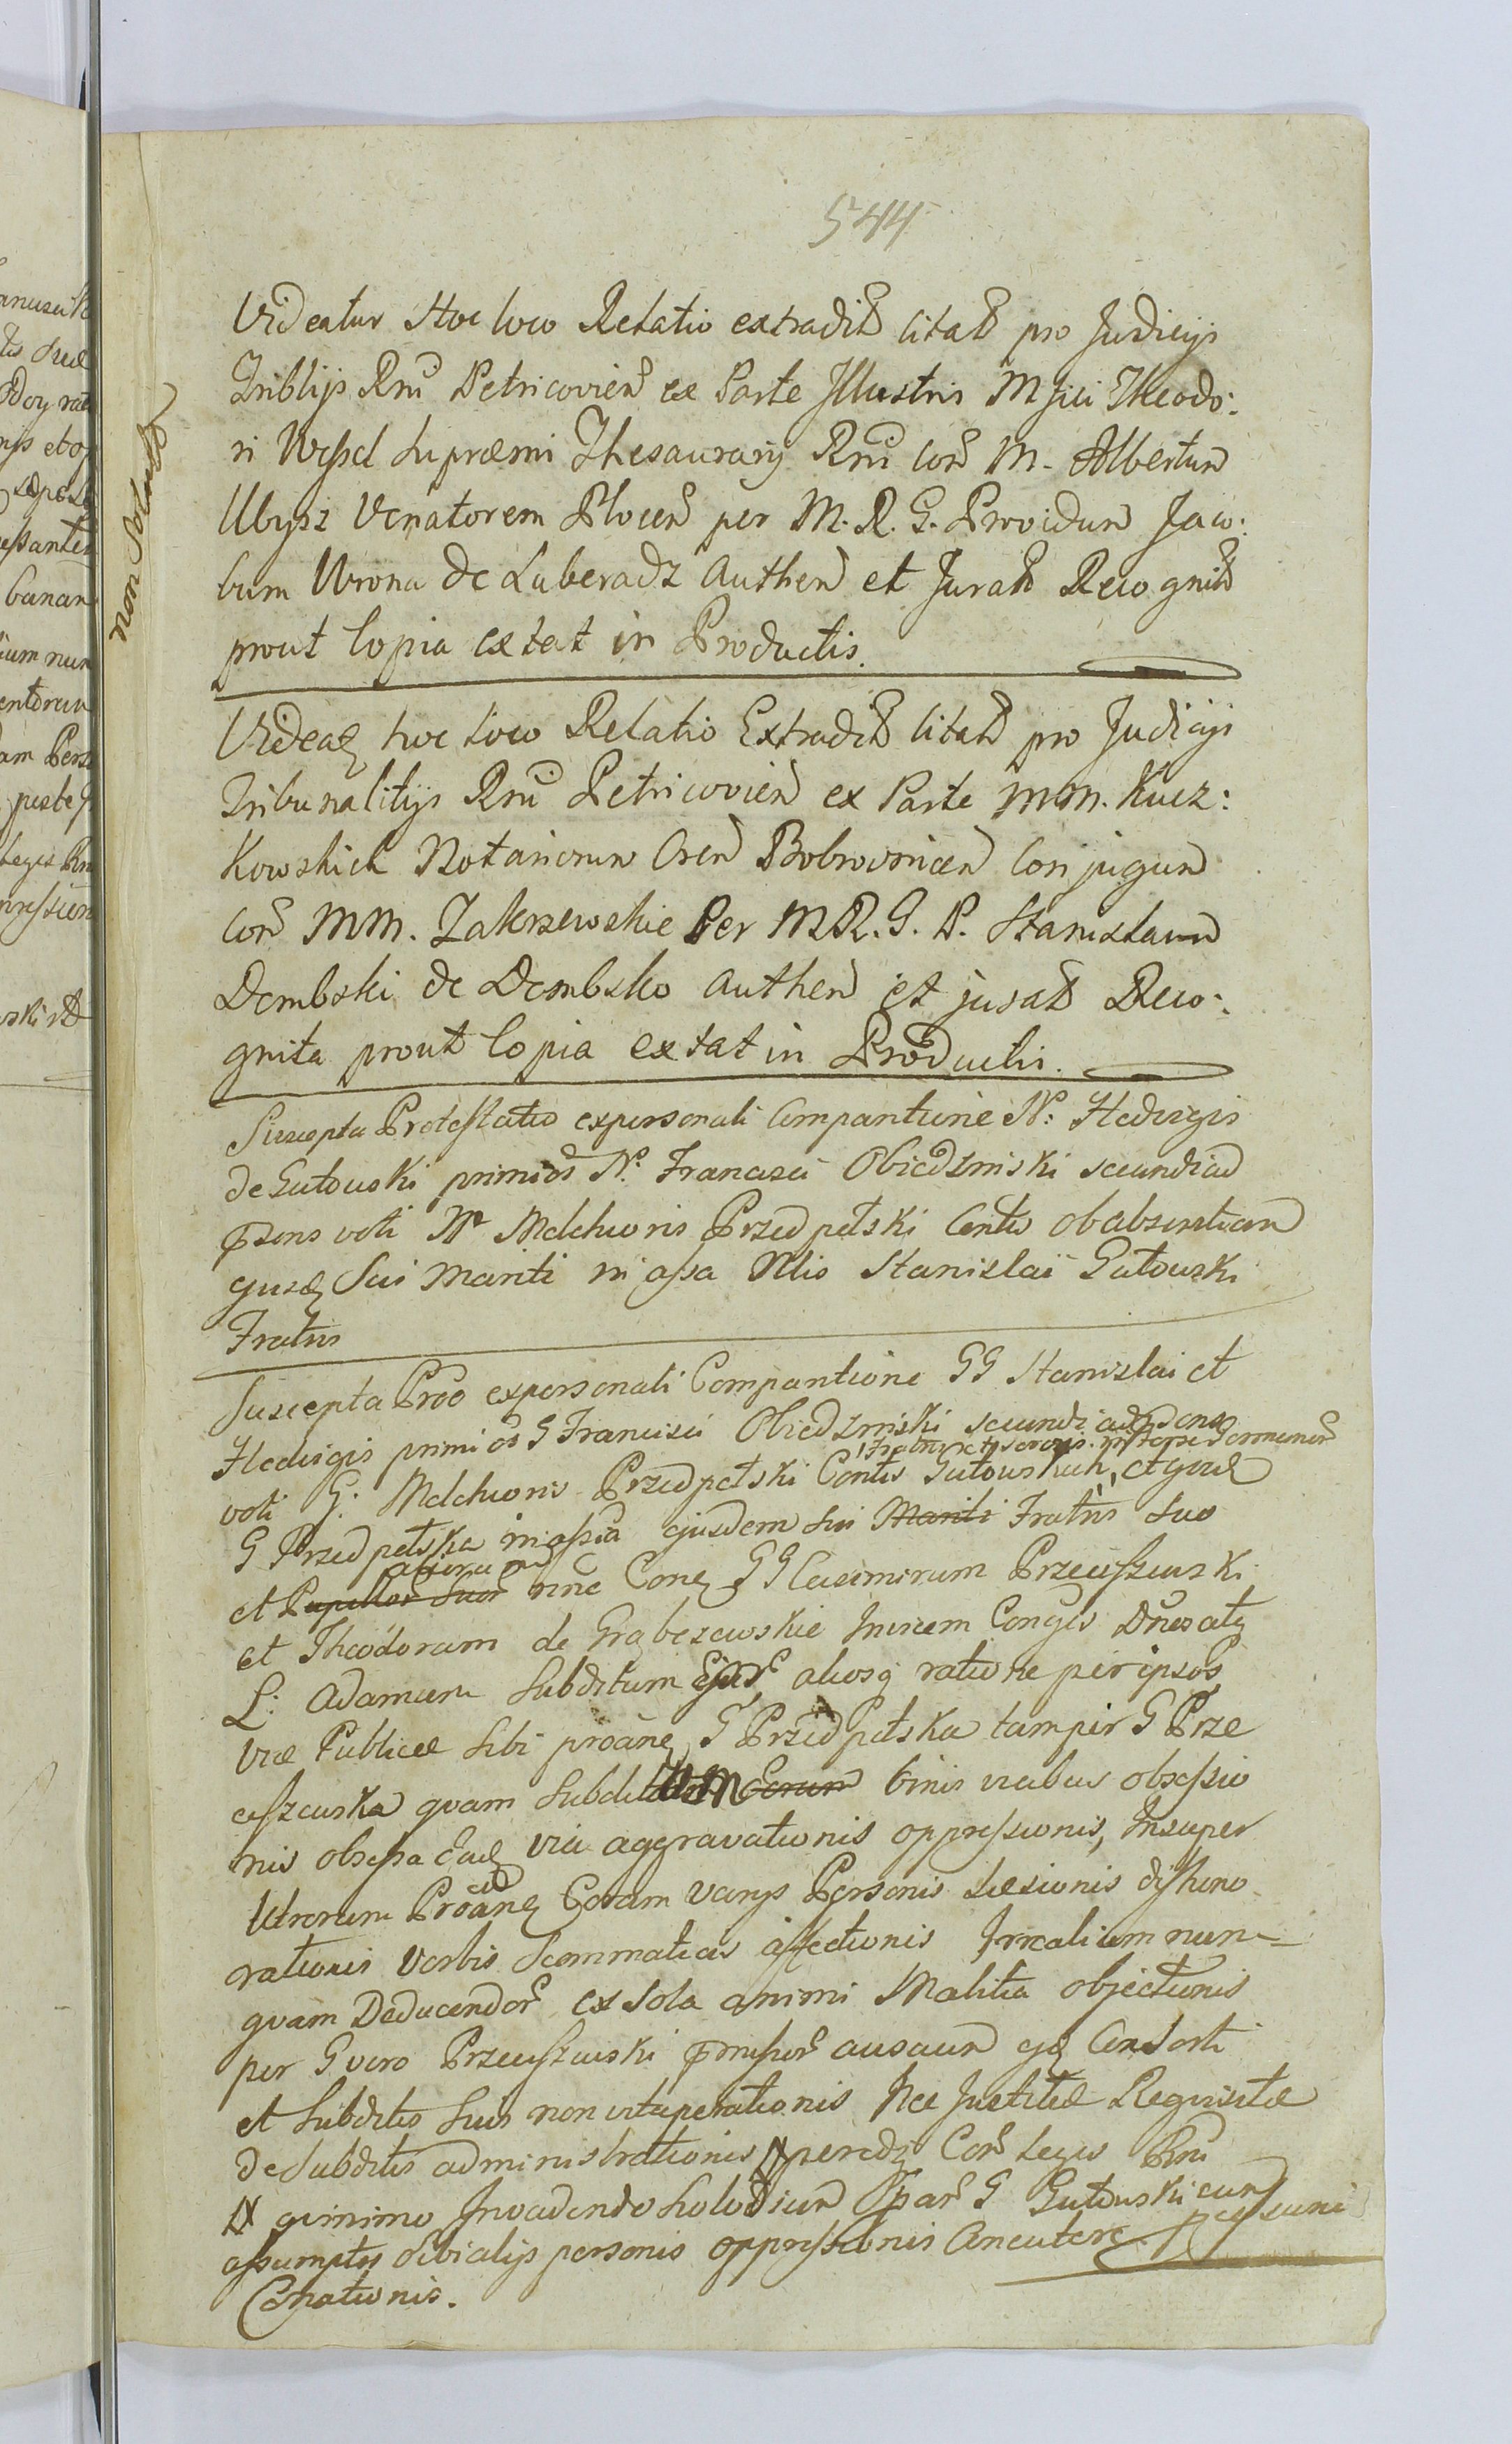 544
non solut
Videatur Hoc loco Relatio extradit citat pro Judicijs
Triblijs Rni Petricovien ex Parte Illustris Mfici Theodo:
ri Wessel Supræmi Thesaurarij Rni Con M. Albertum
Ubysz Venatorem Plocen per M. R. G. Providum Jaco:
bum Wrona de Luberadz Authen et Jurat Recognit
prout Copia extat in Productis.
Videat hoc loco Relatio Extradit citat pro Judicijs
Tribunalitijs Rni Petricovien ex Parte MM. Kucz:
kowskich Notariorum Cren Bobrovnicen Conjugum
Con MM. Zakrzewskie Per MR. G. P. Stanislaum
Dembski de Dembsko Authen et jurat Reco:
gnita prout Copia extat in Productis.
Suscepta Protestatio expersonali Comparitione N: Hedvigis
de Gutowski primi os N. Francisci Obiedzinski secundi ad
præns voti N Melchioris Przedpelski Contis ob absentiam
Sui Mariti in assa Nlis Stanislai Gutowski
Fratris
Suscepta Prõo expersonali Comparitione GG Stanislai et
Hedvigis primi os G Francisci Obiedzinski secundi ad præns
voti G. Melchioris Przedpelski Contis Gutowskich, et
Fratris et Sororis
G Przedpelska in assa ejusdem sui Mariti Fratris suo
et Pupillor Suor nne Conq GG Casimirum Przeciszewski
et Theodoram de Grąbczewskie Invicem Conges
L: Adamum Subditum Ejus, aliosq ratione per ipsos
viæ Publicæ sibi proãneq G Przedpelska tam per G Prze
ciszewska quam Subditum Eorum binis vicibus obsessio
nis obsessa Eadq via aggravationis oppressionis, Insuper
Utrorum Proãneq Coram varijs Personis Læsionis dishono
rationis verbis Scommaticis affectionis Irrealium nun-
quam Deducendor ex sola animi Malitia objectionis
per G vero Przeciszewski præmissor ausuum Consorti
et Subditis Suis non vituperationis Nec Justitiæ Requisitæ
de Subditis administrationis Con Leges Rni
quinimo Invadendo par G Gutowski cum
assumptis sibi alijs personis oppressionis Concutere
Conationis.